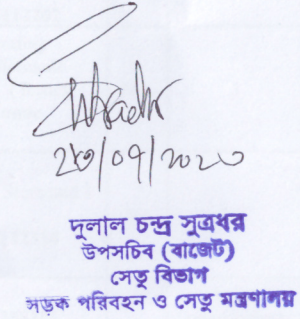 দুলাল চন্দ্র সুত্রধর
উপসচিব (বাজেট)
সেতু বিভাগ
সড়ক পরিবহন ও সেতু মন্ত্রণালয়